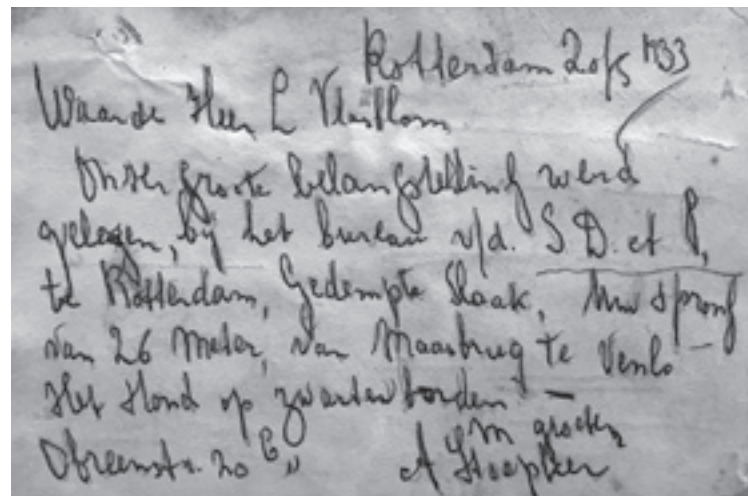 Rotterdam 20/5 1933
Waarde Heer L Vlasblom
Onzer groote belangstelling werd
gelezen, bij het bureau v/d. S D. A P,
te Rotterdam, Gedempte Slaak, Uw sprong
van 26 Meter, van Maasbrug te Venlo
Het stond op zwarte borden —
m groeten
20 B „ A